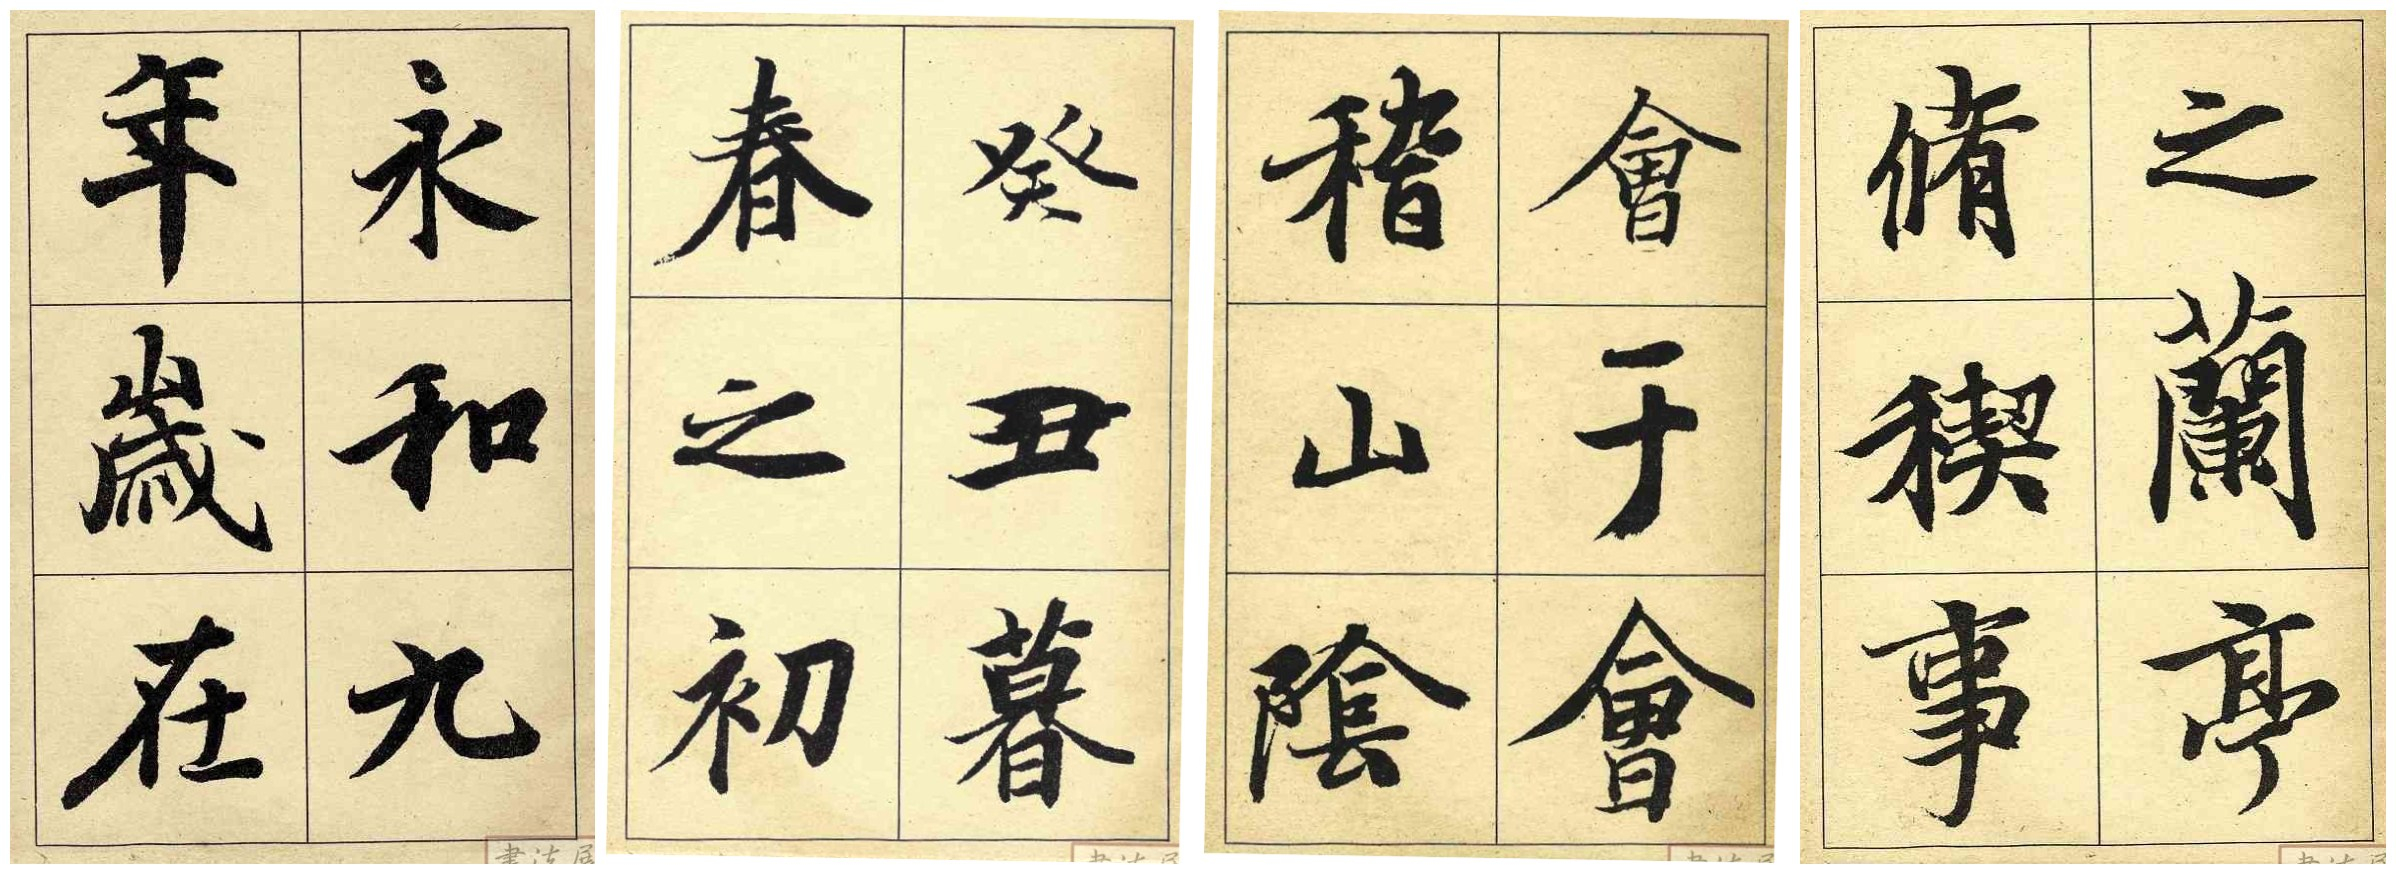 永和九
年歲在
癸丑暮
春之初
會于會
稽山陰
之蘭亭
脩稧事
書法
書法
書法